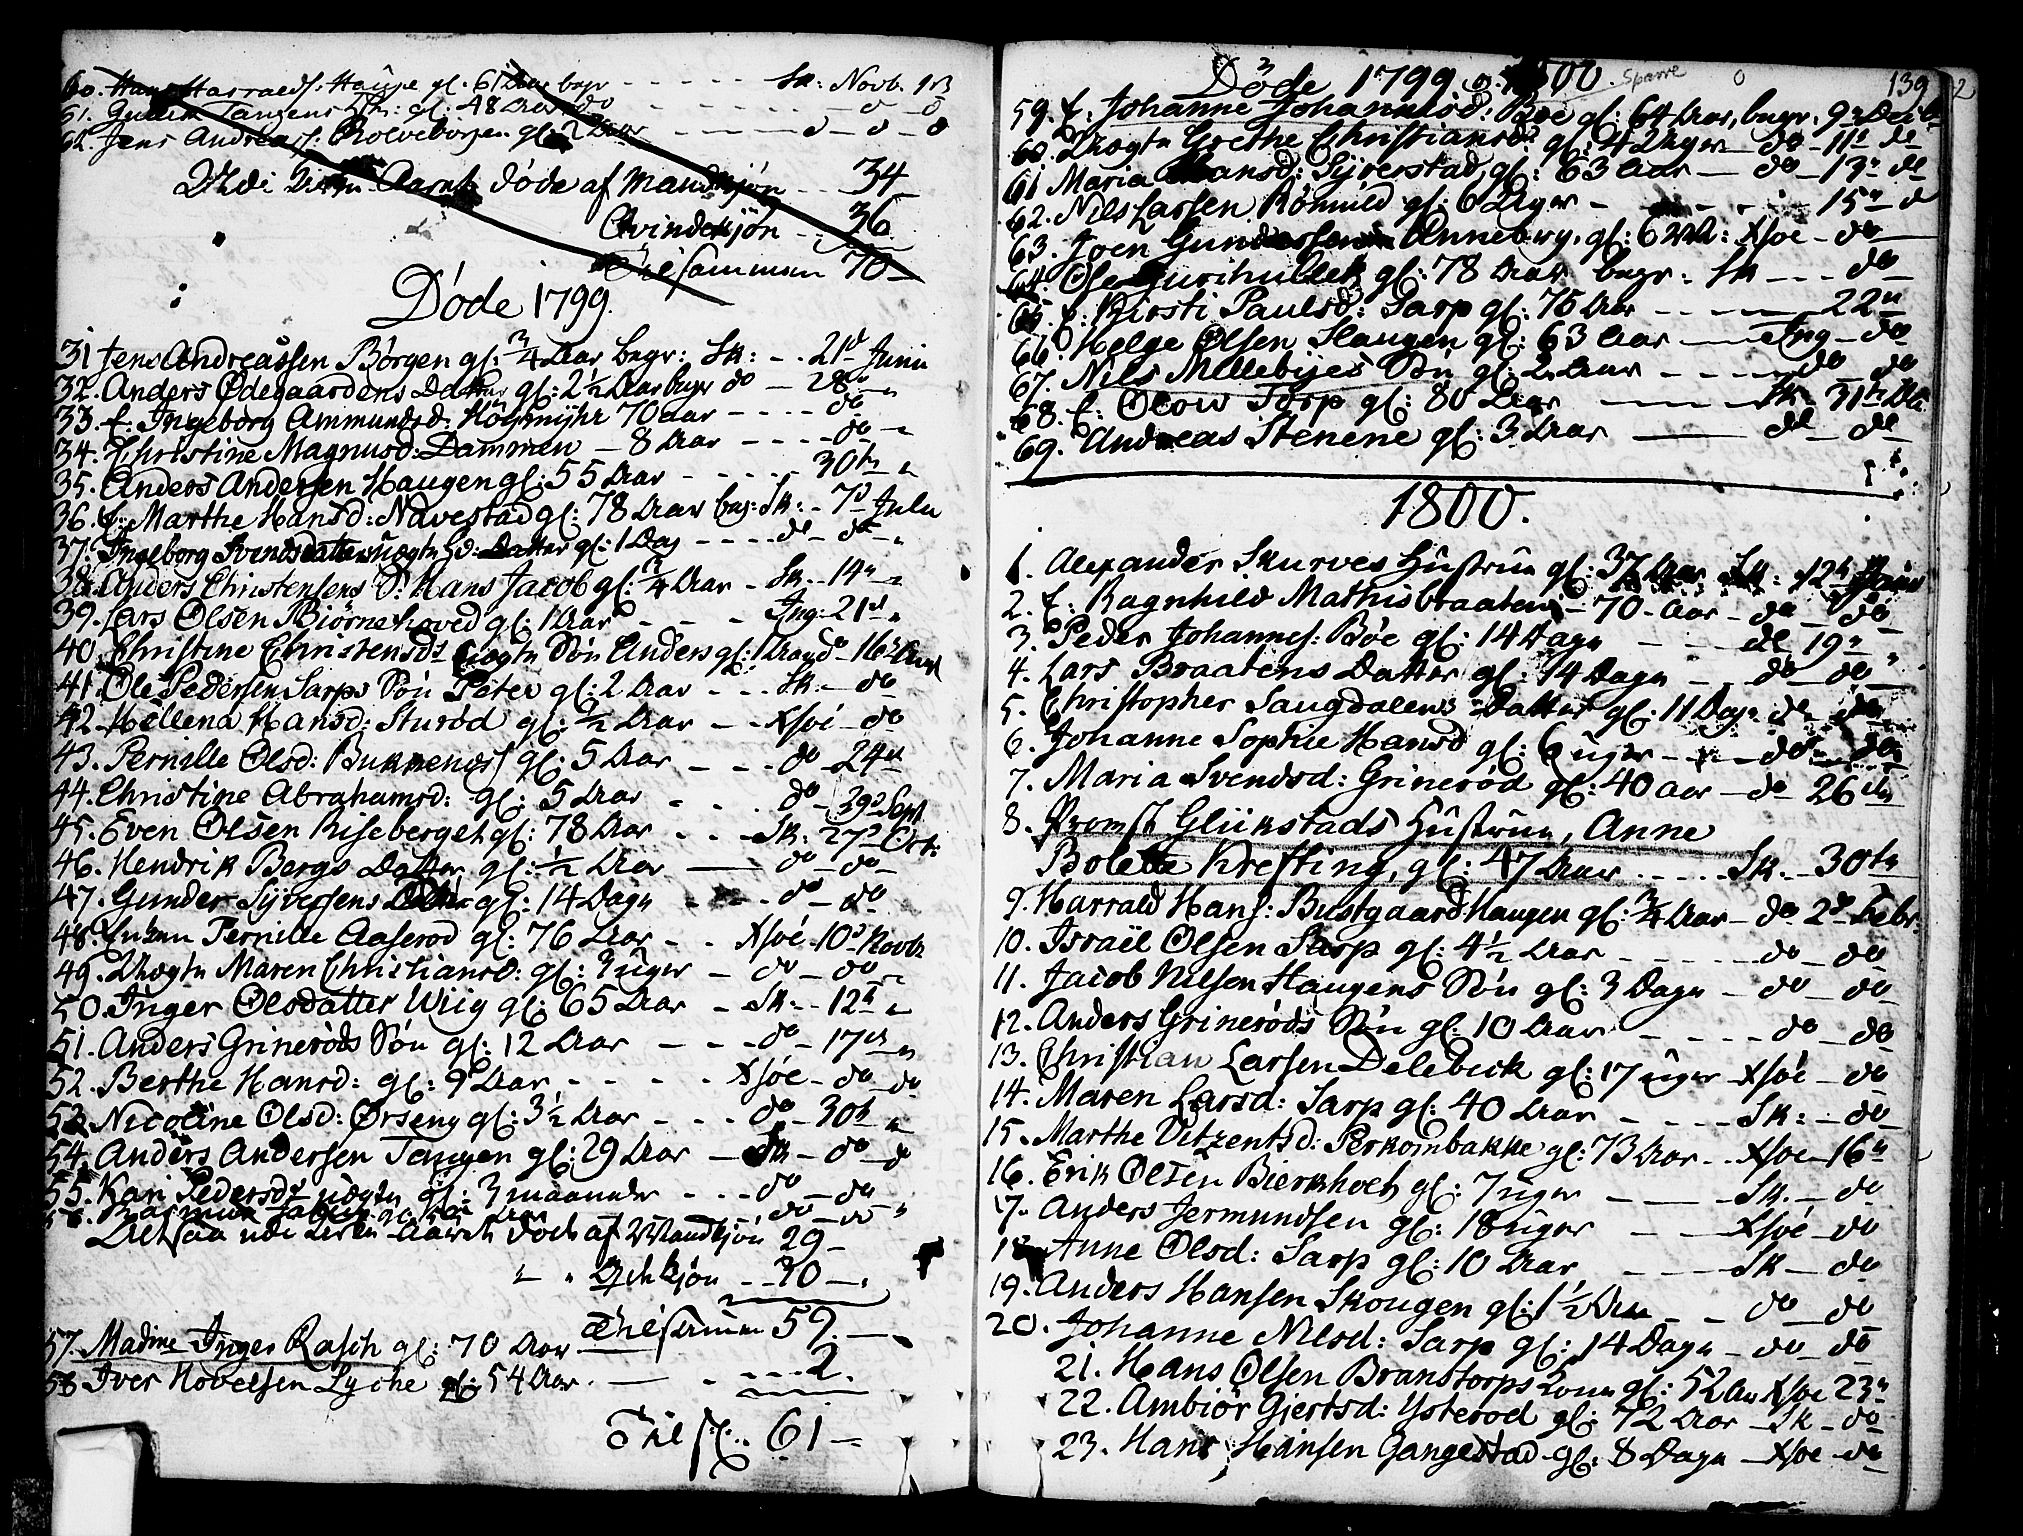 60. Hans Harraeds: Hauge gl: 61 Aar begr - - - Sk: Novb. 1 13
61. Tangens gl: 48 Aar do - - - d d
62. Jens Andreas: Kolveborgen gl: 2 Aar - - - d - d - d
Udi Dette Aaret døde af Mandkjøn - - 34
Qvindekjøn - - 36
Tilsammen 70
Døde 1799.
31 Jens Andreassen Børgen gl: 3/4 Aar begr: Sk: - - 21d Junii
32. Anders Ødegaardens Datter gl: 2 1/2 Aar begr do - 28de "
33. E: Ingeborg Ammundsd: Høysmyhr 70 aar - - - - do - "
34. Christine Magnusd: Dammen - 8 Aar - - - - do - "
35. Anders Andersen Haugen gl: 55 Aar - - - - 30te "
36. E: Marthe Hansd: Navestad gl: 78 Aar beg: Sk: - 7d Julii
37. Ingeborg Svendsdatters uægte Datter gl: 1 Dag - - - - do - do - "
38. Anders Christensens S: Hans Jacob gl: 3/4 Aar - Sk. - 14n "
39. Lars Olsen Biørnehoved gl: 1 Aar - - - Ing: 21d "
40. Christine Christensdr uægte Søn Anders gl: 1 Maan do - 16n Aug
41. Ole Pedersen Sarps Søn Peter gl: 2 Aar - - - Sk. - do
42. Hellena Hansd: Sturød gl: 1/2 Aar - - Xsøe - do
43. Pernille Olsd: gl: 5 Aar - - - do - 24n
44. Christine Abrahamsd: gl: 5 Aar - - - do - 29d Sept
45. Even Olsen Riseberget gl: 78 Aar - - - Sk: 27d Octr
46. Hendrik Bergs Datter gl: 1/2 Aar - do - do
47. Gunder Syversens gl: 14 Dage - - - do - do
48. Enken Pernille Aaserød gl: 76 Aar - - Xsøe - 10d Novbr
49. Uægte Maren Christiansd: gl: 3 uger - do - do "
50. Inger Olsdatter Wiig gl: 65 Aar - Sk. - 12te "
51. Anders Grinerøds Søn gl: 12 Aar - - - do - 17de "
52. Berthe Hansd: gl: 9 Aar - - - - Xsøe - do - do
53. Nicoline Olsd: Ørseng gl: 3 1/2 Aar - - - do - 30te "
54. Anders Andersen Tangen gl: 29 Aar - Sk - do - d
55. Kari Pedersdr uægte gl: 3 maaneder - - - do - do "
56. Rasmus do - do
Altsaa udi dette Aaret døde af Mandkjøn 29 -
" " Qvkkjøn - - 30 - "
Thilsammen 59. -
57. Madme Inger Rasch gl: 70 Aar
58 Iver Hovelsen Lyche gl: 54 Aar. - - - - - 2.
Til s: 61 -
Døde 1799 og 1800
Sparre 0 139
59. E: Johanne Johannesd: Bøe gl: 64 Aar, begr: 9n Decbr
60. Uægte Grethe Christiansdr gl: 4 Dager do - 11te do
61 Maria Hansd: Syverstad, gl: 63 Aar - do - 13n do
62. Nils Larsen Rømild gl: 6 Uger - - - - 15n d
63. Joen Gundersen Anneberg, gl: 6 : Xsøe - do
64. Ole Gurihullet gl: 78 Aar begr: Sk - - do
65. E: Kirsti Paulsd: Sarp gl: 75 Aar - - - 22n
66. Helge Olsen Haugen gl: 63 Aar - Ing - do
67. Nils Mellebyes Søn gl: 2 Aar - - - do - do
68. E: Olow Torp gl: 80 Aar - Sk - 31te do
69. Andreas Stenene gl: 3 Aar - do - do
1800.
1. Alexander Skurves Hustrue gl: 37 Aar Sk: 12te
2. E: Ragnhild Mathisbraaten - 70 - Aar - do - do
3. Peder Johannes: Bøe gl: 14 Dage - - - do 19n "
4. Lars Braatens Datter gl: 14 Dage - do - do
5. Christopher Saugdalens Datter gl: 11 Dag: do do
6. Johanne Sophie Hansd gl: 6 uger - - do - do
7. Maria Svendsd: Grinerød gl: 40 aar - do 26 de
8. Promst Glükstads Hustrue, Anne
Bolette Krefting, gl: 47 Aar. - - - Sk. - 30te
9. Harrald Hans: Bustgaard Haugen gl: 3/4 Aar - do 2d Febr.
10. Israël Olsen Sarp gl: 4 1/2 Aar - - - - do - do
11. Jacob Nilsen Haugens Søn gl: 3 Dage - do - do
12. Anders Grinerøds Søn gl: 10 Aar - - - - do - do
13. Christian Larsen Delebeck gl: 17 uger - Xsøe - do
14. Maren Larsd: Sarp gl: 40 Aar - - - Sk: - do
15. Marthe Vitzentsd: Perkombakke gl: 73 Aar - - Xsøe - 16n
16. Erik Olsen Bierkholt gl: 7 uger - - Sk. - do
17. Anders Jermundsen gl: 18 uger - Xsøe - do
18 Anne Olsd: Sarp gl: 10 Aar - - Sk - do
19. Anders Hansen Skougen gl: 1 1/2 Aar - - do - do
20. Johanne Nilsd: Sarp gl: 14 Dage - do - do
21. Hans Olsen Branstorps gl: 52 Aar Xsøe 23n
22. Ambiør Gjertsd: Ysterød gl: 72 Aar - Sk - do
23. Hans Hansen Gangestad gl: 8 Dage - Xsøe - do